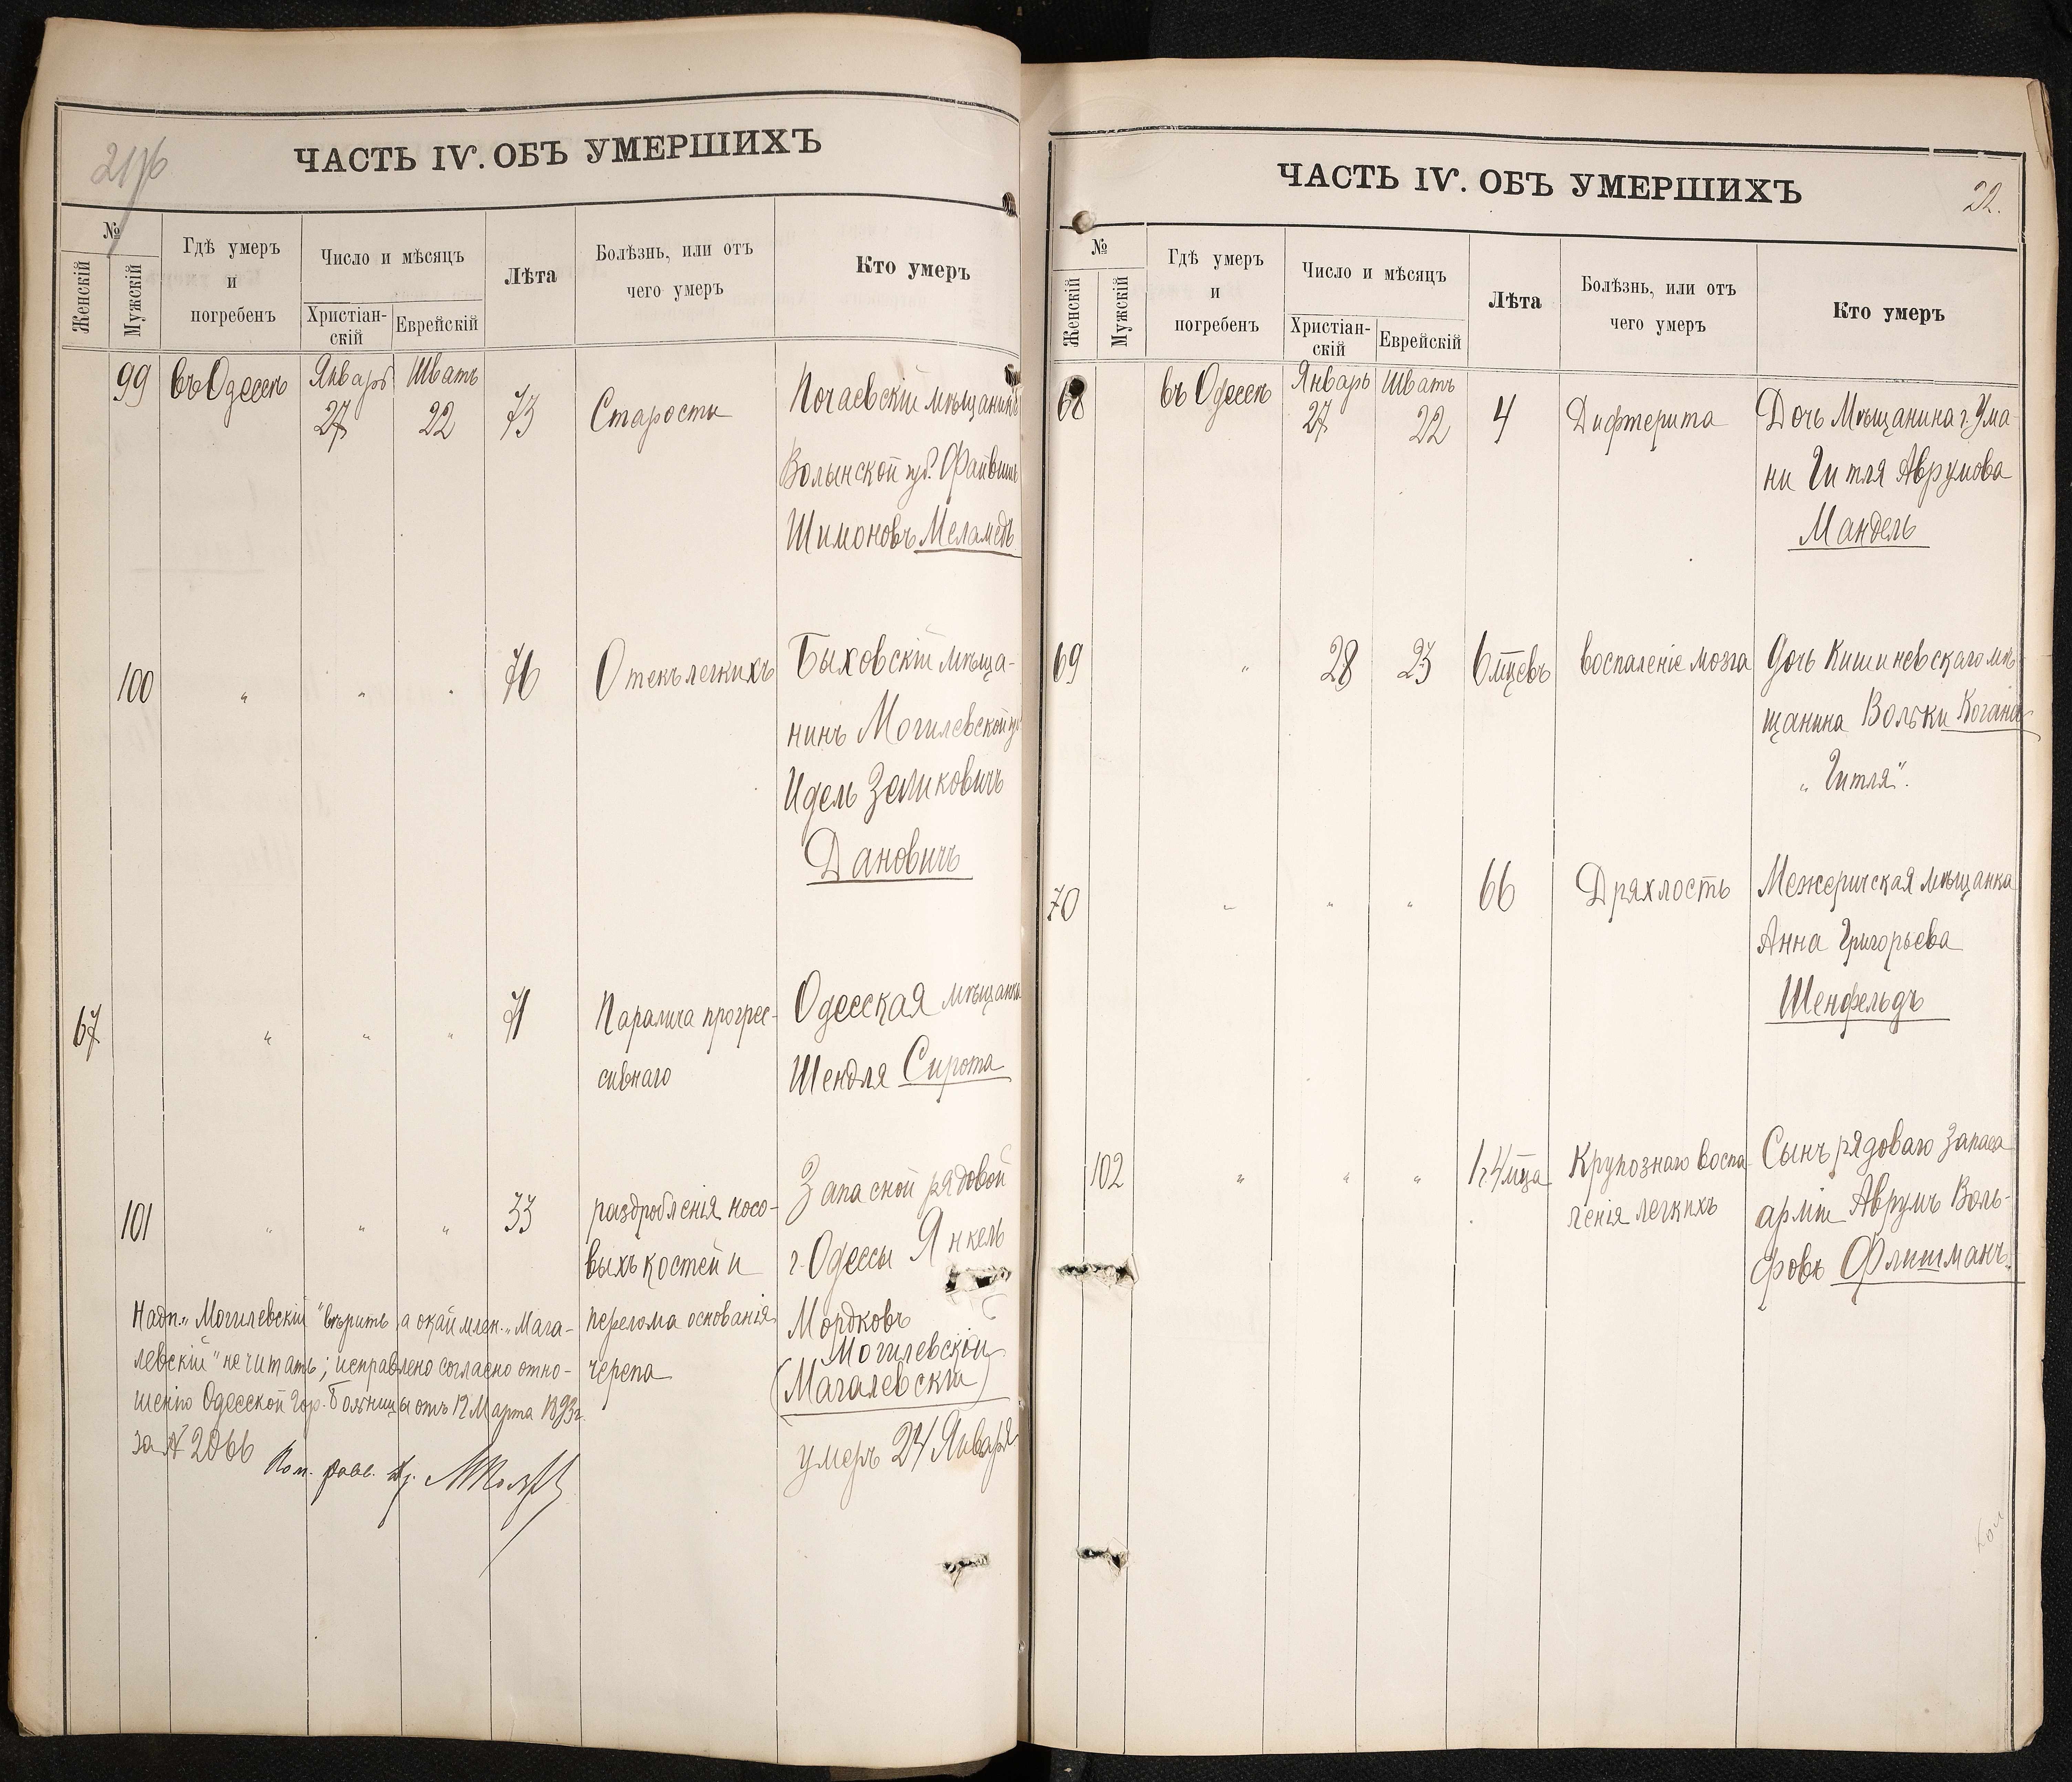 21/76
ЧАСТЬ IV. ОБЪ УМЕРШИХЪ
№
Женскій
Мужскій
Гдѣ умеръ
и
погребенъ
Число и мѣсяцъ
Христіан-
скій
Еврейскій
Лѣта
Болѣзнь, или отъ
чего умеръ
Кто умеръ
99 въ Одессѣ Январь 27 Шватъ 22 73 Старости Почаевскій мѣщанинъ
Волынской губ. Файвишъ
Шимоновъ Меламедъ
100 " " " 76 Отекъ легкихъ Быховскій мѣща-
нинъ Могилевской гу
Идель Зеликовичъ
Дановичъ
67 " " " 71 Паралича прогрес- Одесская мѣщанка
сивнаго Шендля Сирота
101 " " " 33 раздробленія носо- Запасной рядовой
выхъ костей и г. Одессы Янкель
перелома основанія Мордковъ
Могилевскій
черепа (Магалевскій)
умеръ 24 Января
Надп. "Могилевскій" вѣрить, а окаймлен. "Мага-
левскій" не читать; исправлено согласно отно-
шенію Одесской Гор. Больницы отъ 12 Марта 1893 г.
за № 2066
ЧАСТЬ IV. ОБЪ УМЕРШИХЪ
22.
№
Женскій
Мужскій
Гдѣ умеръ
и
погребенъ
Число и мѣсяцъ
Христіан-
скій
Еврейскій
Лѣта
Болѣзнь, или отъ
чего умеръ
Кто умеръ
68 въ Одессѣ Январь 27 Шватъ 22 4 Дифтерита Дочь Мѣщанина г. Ума-
ни Гитля Аврумова
Мандель
69 " 28 23 6 мцевъ воспаленіе мозга Дочь Кишиневскаго мѣ-
щанина Вольки Когана
"Гитля".
70 " " " 66 Дряхлость Межеричская мѣщанка
Анна Григорьева
Шенфельдъ
102 " " " 1 г. 4 мца Крупознаго воспа- Сынъ рядоваго Запаса
ленія легкихъ арміи Аврумъ Воль-
фовъ Флишманъ.